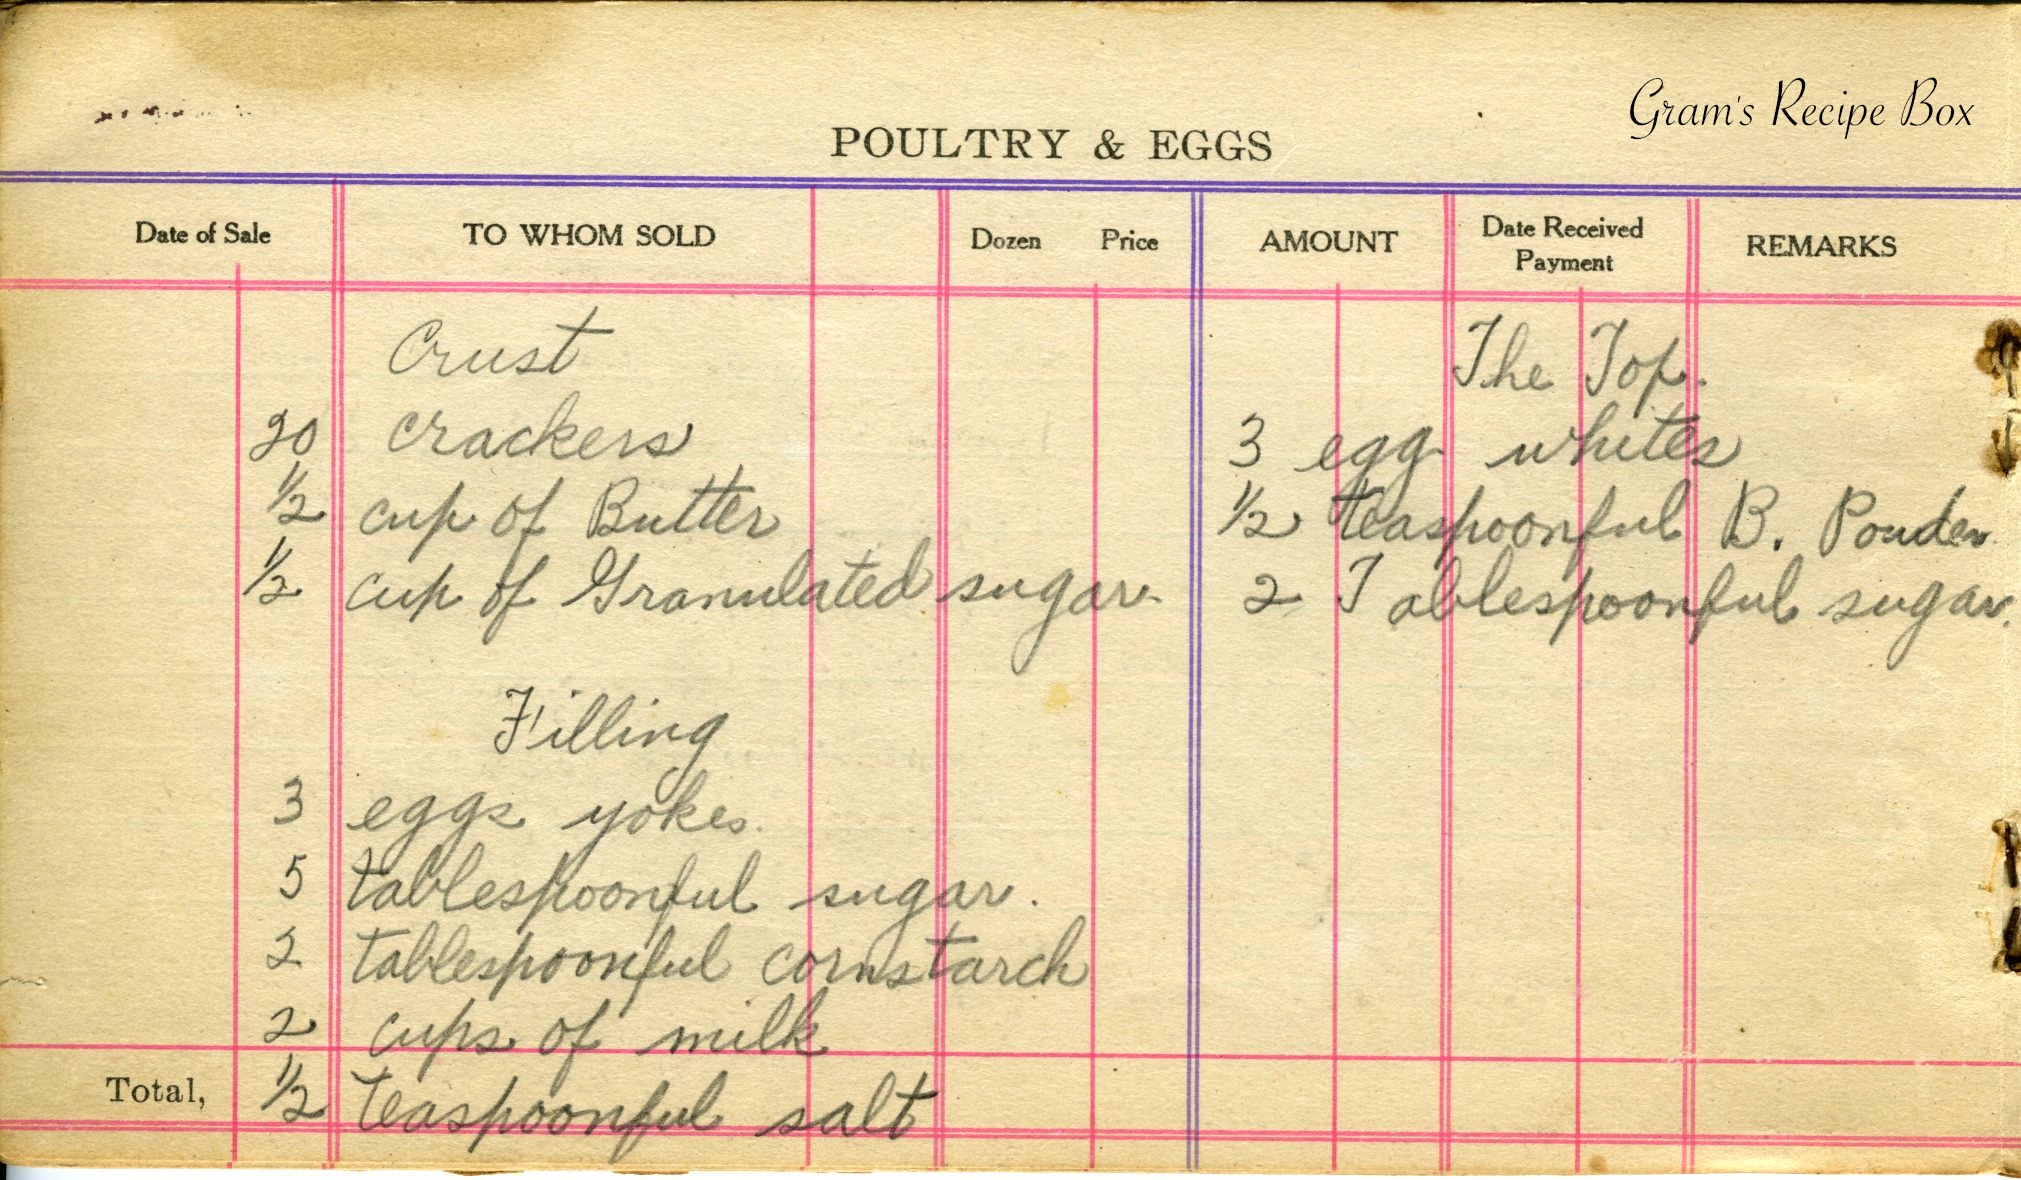 Gram's Recipe Box
POULTRY & EGGS
Date of Sale TO WHOM SOLD Dozen Price AMOUNT Date Received Payment REMARKS
Crust
20 crackers
1/2 cup of Butter
1/2 cup of Granulated sugar
Filling
3 eggs yokes.
5 tablespoonful sugar.
2 tablespoonful cornstarch
2 cups of milk
Total, 1/2 teaspoonful salt
The Top.
3 egg whites
1/2 teaspoonful B. Powder
2 Tablespoonful sugar.